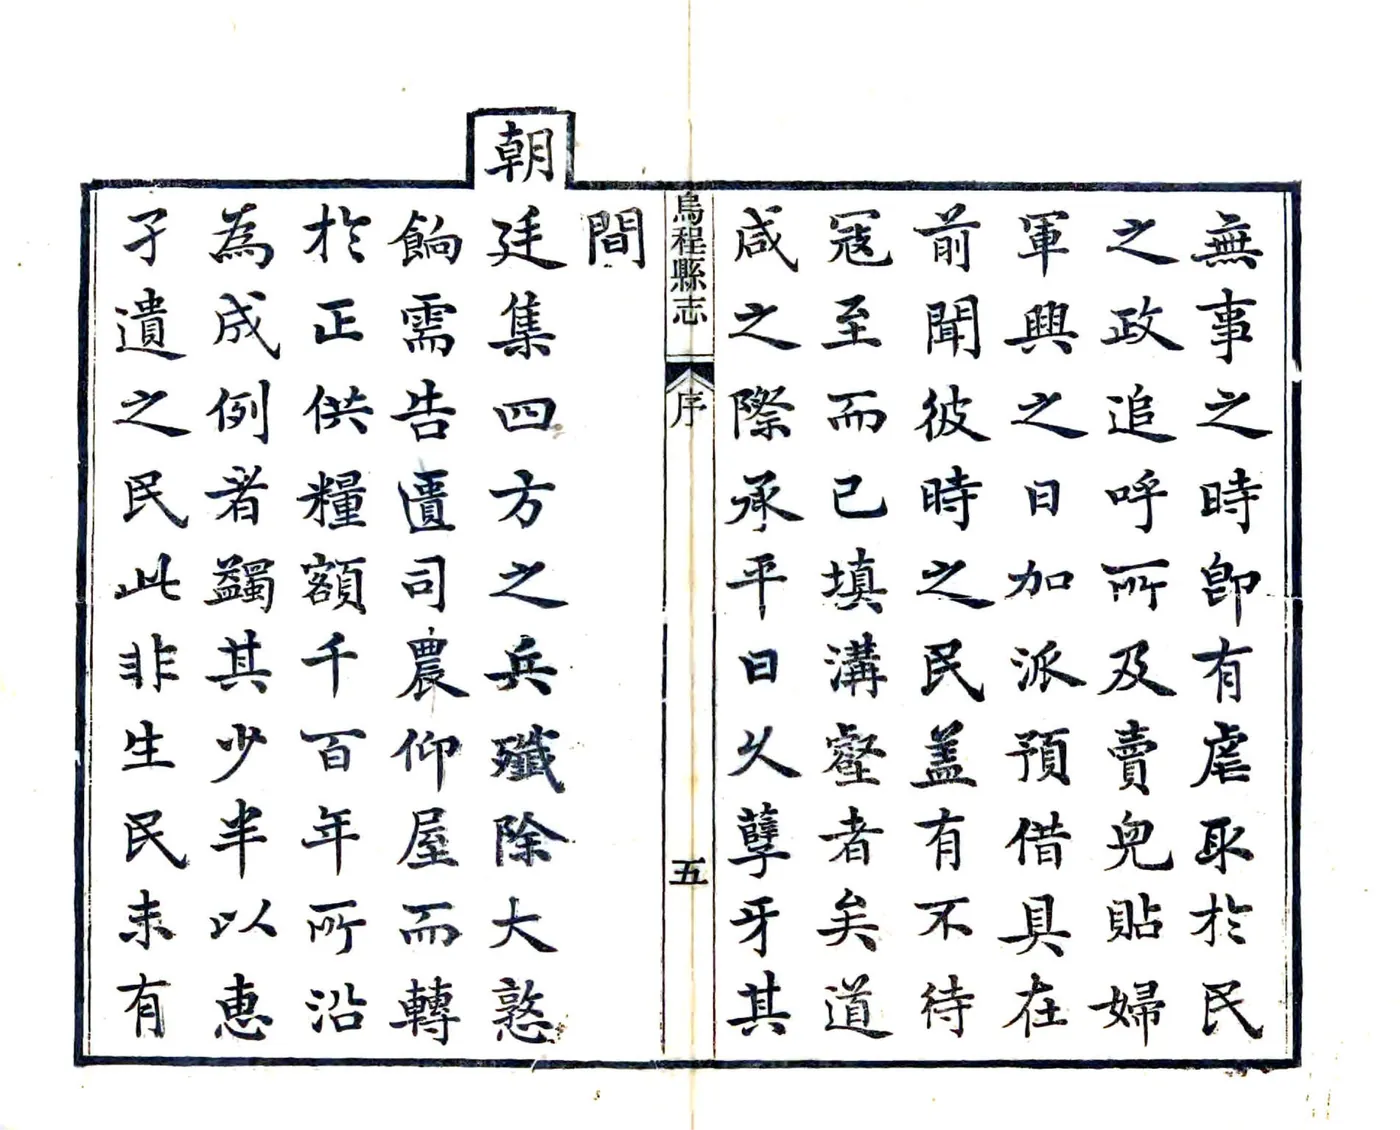 無事之時即有虐取於民
之政追呼所及賣兒貼婦
軍興之日加派預借具在
前聞彼時之民蓋有不待
冦至而已填溝壑者矣道
咸之際承平日久孽牙其
烏程縣志
序
五
間
朝廷集四方之兵殲除大憝
餉需告匱司農仰屋而轉
於正供糧額千百年所沿
為成例者蠲其少半以惠
孑遺之民此非生民未有